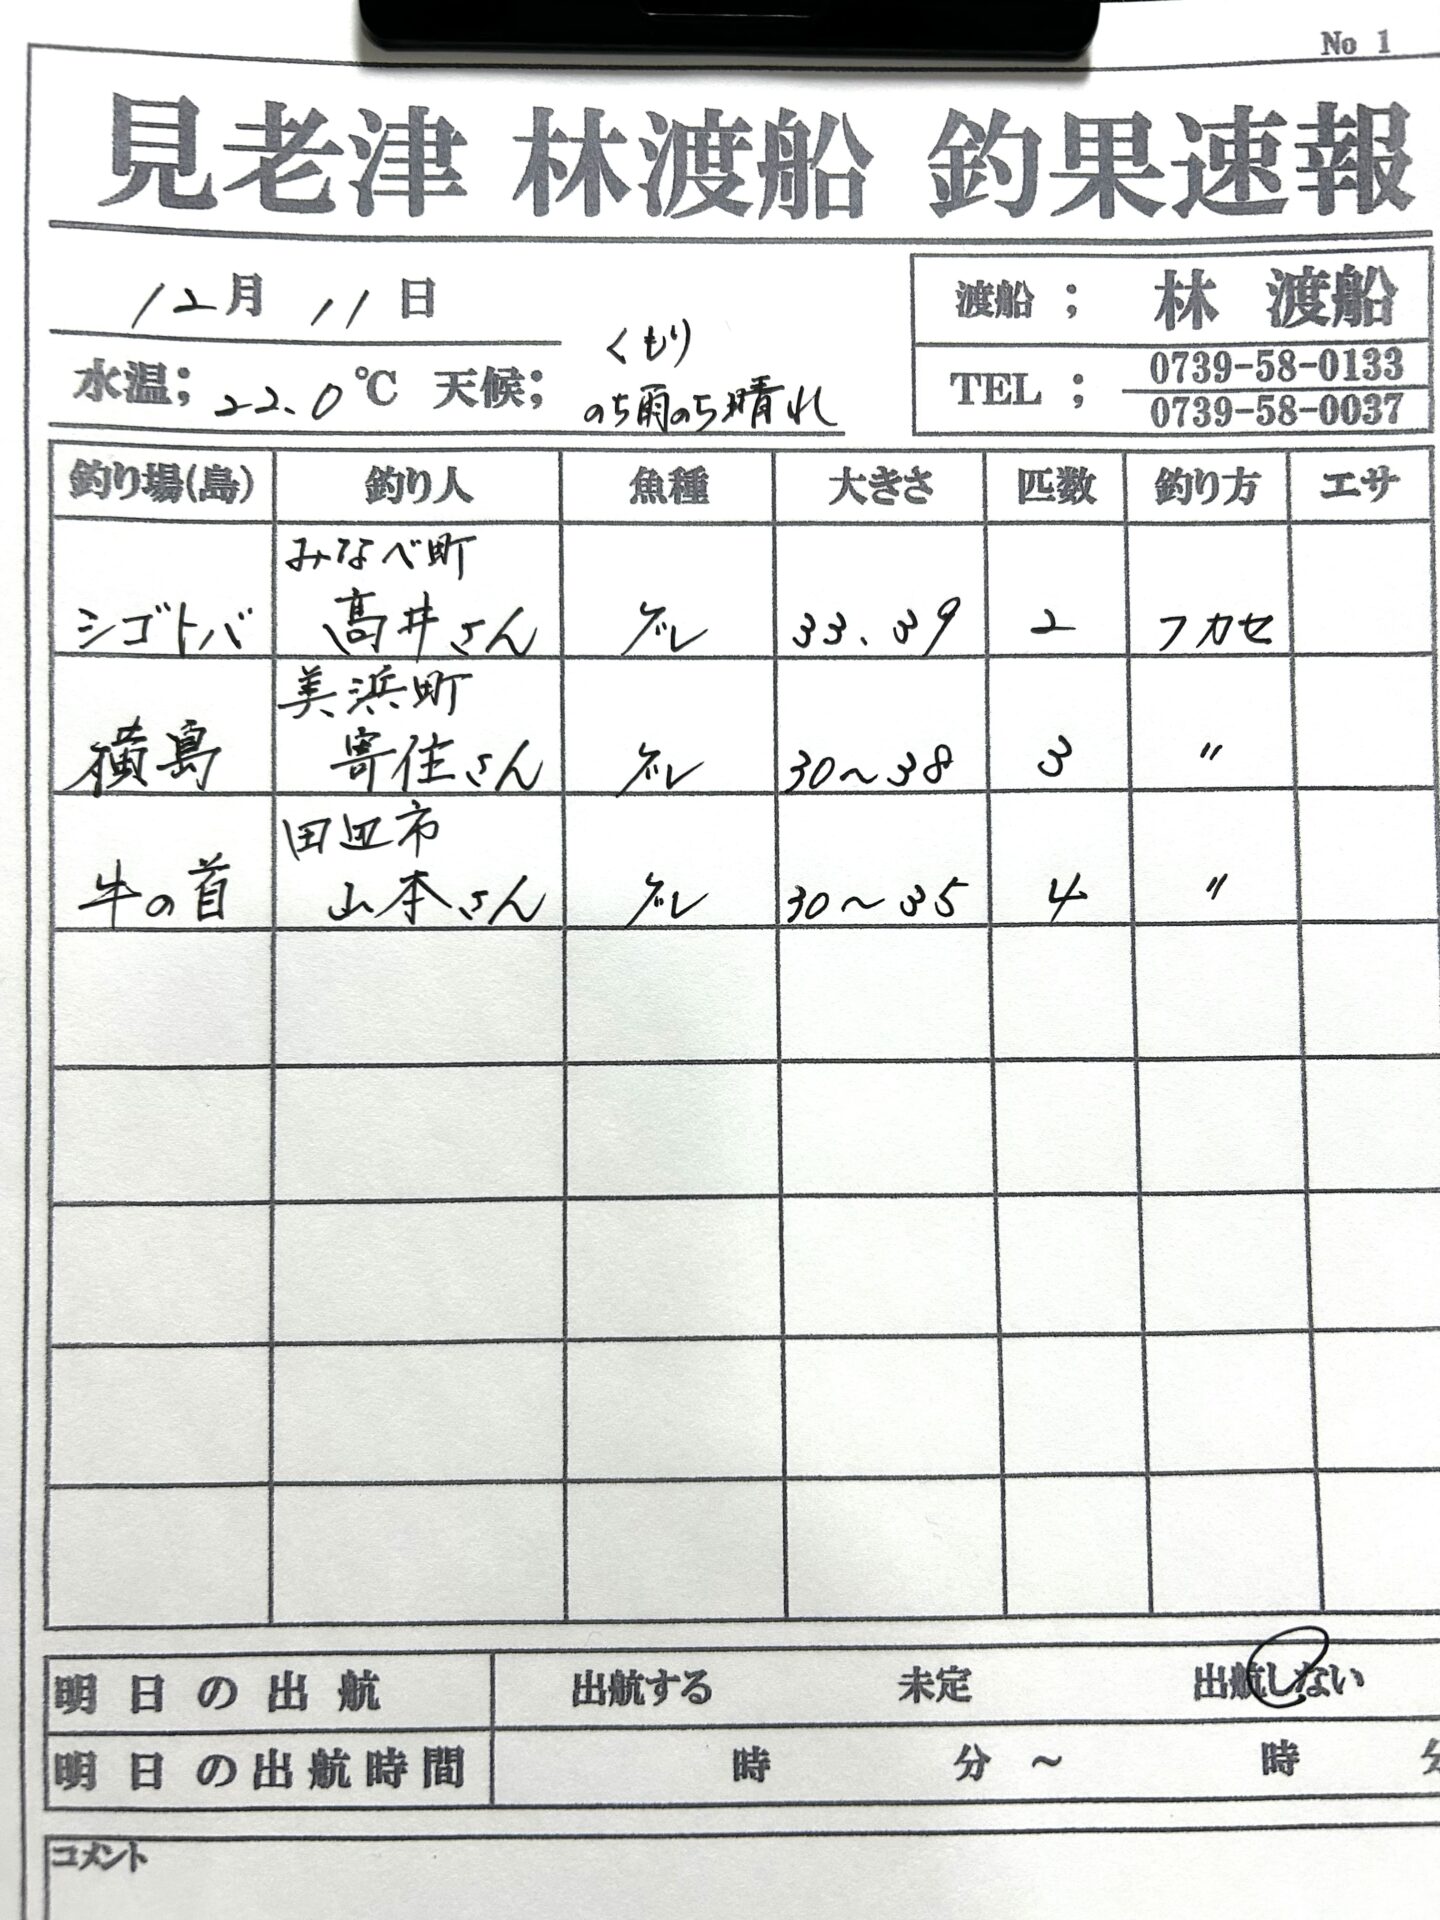 No 1
見老津 林渡船 釣果速報
12月 11日
渡船 ; 林 渡船
水温; 22.0℃ 天候; くもり
のち雨のち晴れ
TEL ; 0739-58-0133
0739-58-0037
釣り場(島) 釣り人 魚種 大きさ 匹数 釣り方 エサ
みなべ町
シゴトバ 高井さん グレ 33、39 2 フカセ
美浜町
横島 寄住さん グレ 30〜38 3 〃
田辺市
牛の首 山本さん グレ 30〜35 4 〃
明日の出航 出航する 未定 出航しない
明日の出航時間 時 分 〜 時 分
コメント